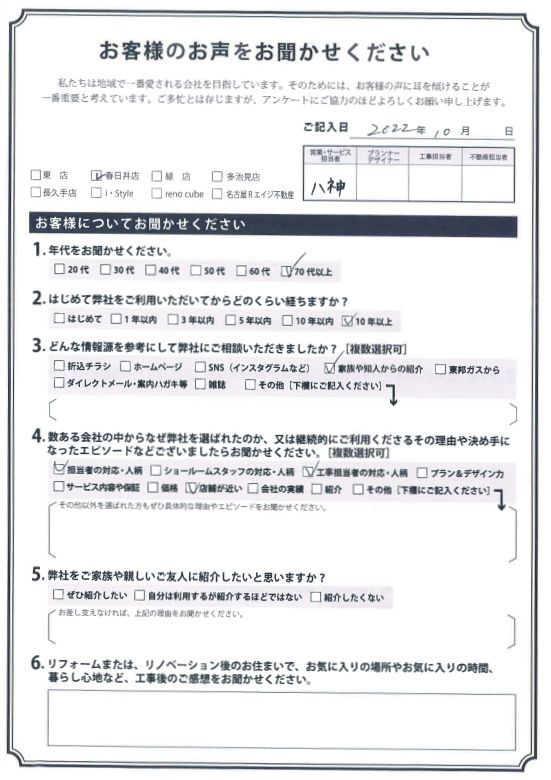 お客様のお声をお聞かせください
私たちは地域で一番愛される会社を目指しています。そのためには、お客様の声に耳を傾けることが
一番重要と考えています。ご多忙とは存じますが、アンケートにご協力のほどよろしくお願い申し上げます。
ご記入日 2022年 10月 日
営業・サービス担当者 プランナーデザイナー 工事担当者 不動産担当者
八神
□東 店 ☑春日井店 □緑 店 □多治見店
□長久手店 □i・Style □reno cube □名古屋Rエイジ不動産
お客様についてお聞かせください
1. 年代をお聞かせください。
□20代 □30代 □40代 □50代 □60代 ☑70代以上
2. はじめて弊社をご利用いただいてからどのくらい経ちますか？
□はじめて □1年以内 □3年以内 □5年以内 □10年以内 ☑10年以上
3. どんな情報源を参考にして弊社にご相談いただきましたか？［複数選択可］
□折込チラシ □ホームページ □SNS（インスタグラムなど） ☑家族や知人からの紹介 □東邦ガスから
□ダイレクトメール・案内ハガキ等 □雑誌 □その他［下欄にご記入ください］
4. 数ある会社の中からなぜ弊社を選ばれたのか、又は継続的にご利用くださるその理由や決め手に
なったエピソードなどございましたらお聞かせください。［複数選択可］
☑担当者の対応・人柄 □ショールームスタッフの対応・人柄 ☑工事担当者の対応・人柄 □プラン＆デザイン力
□サービス内容や保証 □価格 ☑店舗が近い □会社の実績 □紹介 □その他［下欄にご記入ください］
その他以外を選ばれた方もぜひ具体的な理由やエピソードをお聞かせください。
5. 弊社をご家族や親しいご友人に紹介したいと思いますか？
□ぜひ紹介したい □自分は利用するが紹介するほどではない □紹介したくない
お差し支えなければ、上記の理由をお聞かせください。
6. リフォームまたは、リノベーション後のお住まいで、お気に入りの場所やお気に入りの時間、
暮らし心地など、工事後のご感想をお聞かせください。